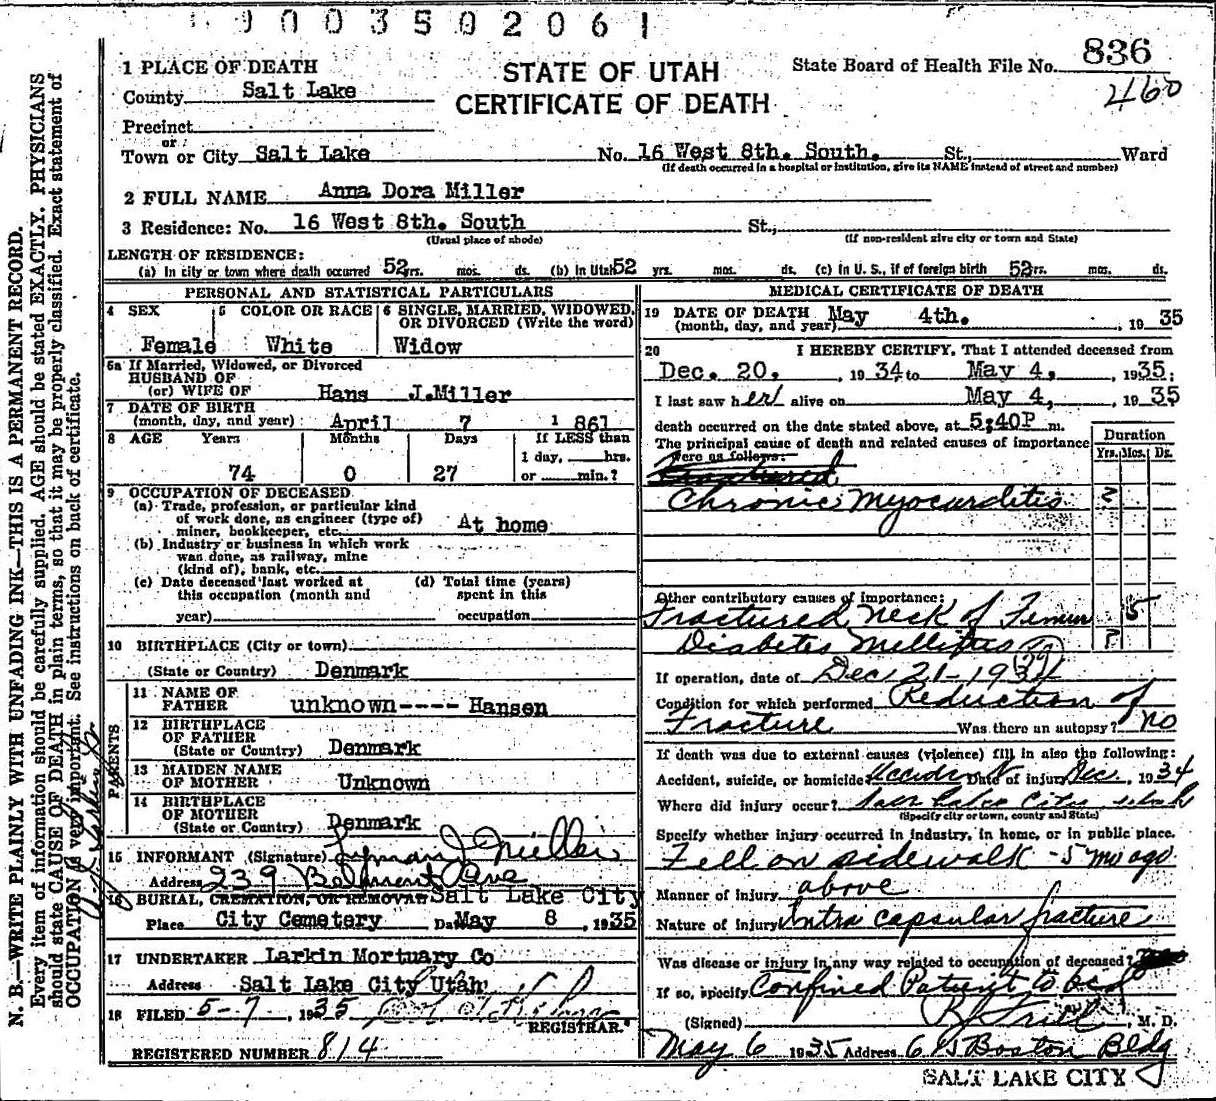 9003502061
836
460
1 PLACE OF DEATH
STATE OF UTAH
CERTIFICATE OF DEATH
State Board of Health File No.
County Salt Lake
Precinct
or
Town or City Salt Lake No. 16 West 8th. South. St., Ward
(If death occurred in a hospital or institution, give its NAME instead of street and number)
2 FULL NAME Anna Dora Miller
3 Residence: No. 16 West 8th. South St.,
(Usual place of abode) (If non-resident give city or town and State)
LENGTH OF RESIDENCE:
(a) In city or town where death occurred 52 yrs. mos. ds. (b) in Utah 52 yrs. mos. ds. (c) in U. S., if of foreign birth 52 yrs. mos. ds.
PERSONAL AND STATISTICAL PARTICULARS
4 SEX 5 COLOR OR RACE 6 SINGLE, MARRIED, WIDOWED, OR DIVORCED (Write the word)
Female White Widow
6a If Married, Widowed, or Divorced
HUSBAND OF
(or) WIFE OF Hans J. Miller
7 DATE OF BIRTH
(month, day, and year) April 7 1861
8 AGE Years Months Days If LESS than
1 day, hrs.
74 0 27 or min.?
9 OCCUPATION OF DECEASED
(a) Trade, profession, or particular kind
of work done, as engineer (type of)
miner, bookkeeper, etc. At home
(b) Industry or business in which work
was done, as railway, mine
(kind of), bank, etc.
(c) Date deceased last worked at
this occupation (month and
year)
(d) Total time (years)
spent in this
occupation
10 BIRTHPLACE (City or town)
(State or Country) Denmark
PARENTS
11 NAME OF
FATHER unknown---- Hansen
12 BIRTHPLACE
OF FATHER
(State or Country) Denmark
13 MAIDEN NAME
OF MOTHER Unknown
14 BIRTHPLACE
OF MOTHER
(State or Country) Denmark
15 INFORMANT (Signature) Lyman J Miller
Address 239 Belmont Ave
16 BURIAL, CREMATION, OR REMOVAL Salt Lake City
Place City Cemetery Date May 8, 1935
17 UNDERTAKER Larkin Mortuary Co
Address Salt Lake City Utah
18 FILED 5-7, 1935
REGISTRAR.
REGISTERED NUMBER 814
MEDICAL CERTIFICATE OF DEATH
19 DATE OF DEATH
(month, day, and year) May 4th., 1935
20 I HEREBY CERTIFY, That I attended deceased from
Dec. 20, 1934 to May 4, 1935;
I last saw her alive on May 4, 1935
death occurred on the date stated above, at 5:40P m.
The principal cause of death and related causes of importance
were as follows:
Duration
Yrs. Mos. Ds.
Chronic Myocarditis ?
Other contributory causes of importance:
Fractured Neck of Femur 5
Diabetes Mellitus ?
If operation, date of Dec 21-1934
Condition for which performed Reduction of
Fracture Was there an autopsy? no
If death was due to external causes (violence) fill in also the following:
Accident, suicide, or homicide Accident Date of injury Dec, 1934
Where did injury occur? Salt Lake City Utah
(Specify city or town, county and State)
Specify whether injury occurred in industry, in home, or in public place.
Fell on sidewalk - 5 mo ago
Manner of injury above
Nature of injury Intra capsular fracture
Was disease or injury in any way related to occupation of deceased?
If so, specify Confined Patient to bed
(Signed) M. D.
May 6 1935 Address 615 Boston Bldg
SALT LAKE CITY
N. B.—WRITE PLAINLY WITH UNFADING INK—THIS IS A PERMANENT RECORD.
Every item of information should be carefully supplied. AGE should be stated EXACTLY. PHYSICIANS
should state CAUSE OF DEATH in plain terms, so that it may be properly classified. Exact statement of
OCCUPATION is very important. See instructions on back of certificate.